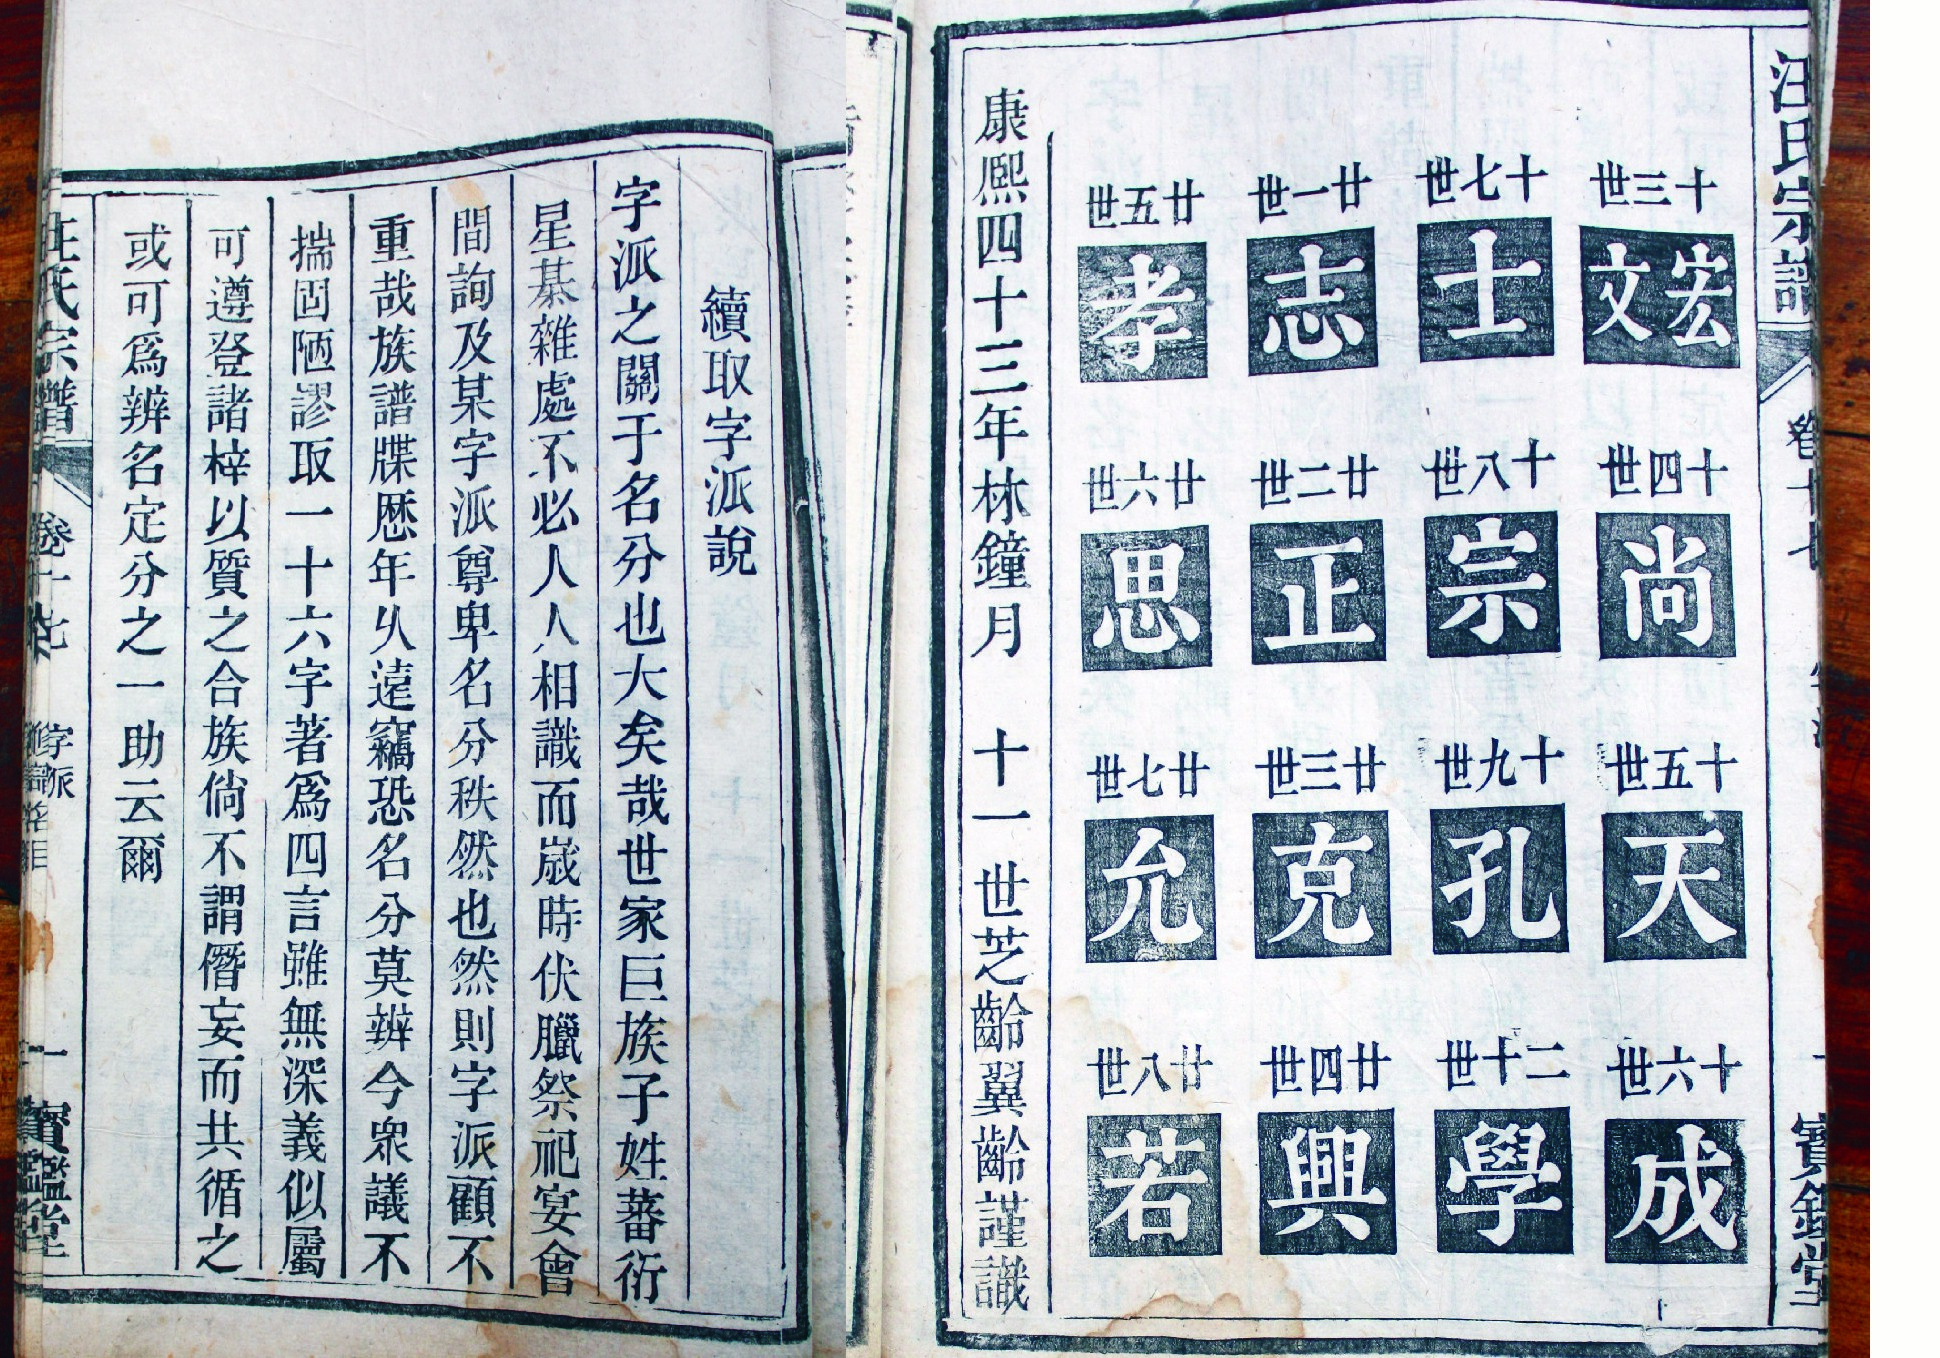 續取字派說
字派之關于名分也大矣哉世家巨族子姓蕃衍
星棊雜處不必人人相識而嵗時伏臘祭祀宴會
間詢及某字派尊卑名分秩然也然則字派顧不
重哉族譜牒歷年乆遠竊恐名分莫辨今眾議不
揣固陋謬取一十六字著爲四言雖無深義似屬
可遵登諸梓以質之合族倘不謂僭妄而共循之
或可爲辨名定分之一助云爾
汪氏宗譜 卷十七 字派 一 寶鑑堂
汪氏宗譜 一 寶鑑堂
十三世 宏文
十四世 尚
十五世 天
十六世 成
十七世 士
十八世 宗
十九世 孔
二十世 學
廿一世 志
廿二世 正
廿三世 克
廿四世 興
廿五世 孝
廿六世 思
廿七世 允
廿八世 若
康熙四十三年林鐘月 十一世芝齡翼齡謹識